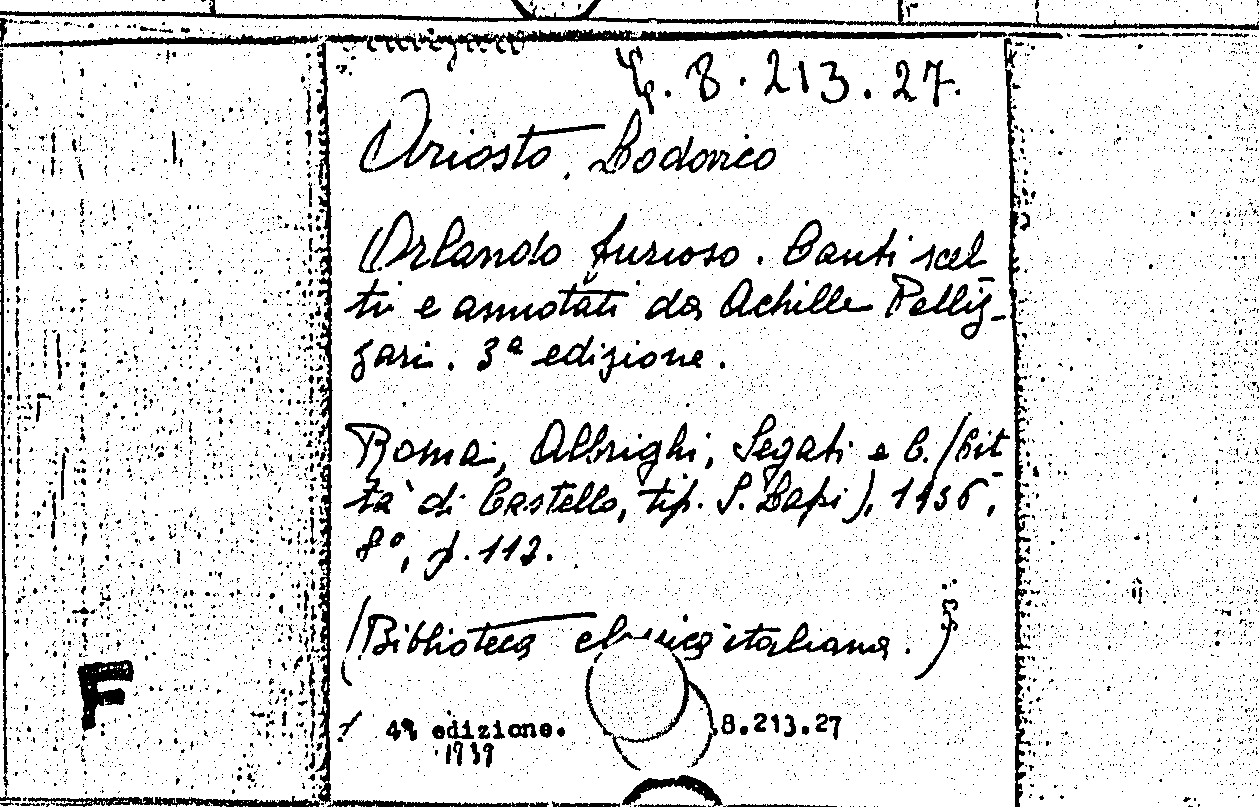 4.8.213.27.
Ariosto, Lodovico
Orlando furioso. Canti scel
ti e annotati da Achille Pelliz-
zari. 3ª edizione.
Roma, Albrighi, Segati e C. (Cit
tà di Castello, tip. S. Lapi), 1936,
8°, p. 112.
(Biblioteca italiana.)
F
4ª edizione. .8.213.27
1939